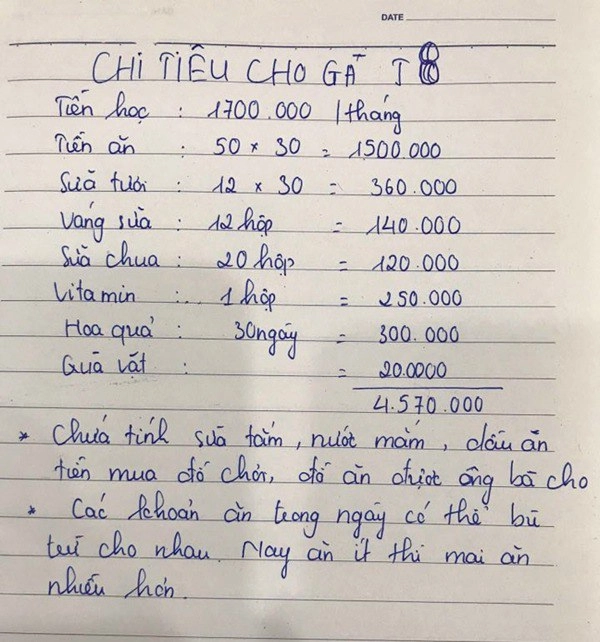 DATE
CHI TIÊU CHO GÀ T 8
Tiền học : 1700.000 /tháng
Tiền ăn : 50 × 30 = 1500.000
Sữa tươi : 12 × 30 = 360.000
Váng sữa : 12 hộp = 140.000
Sữa chua : 20 hộp = 120.000
Vitamin ... 1 hộp = 250.000
Hoa quả : 30 ngày = 300.000
Quà vặt : = 20.0000
4.570.000
* Chưa tính sữa tắm, nước mắm, dầu ăn
tiền mua đồ chơi, đồ ăn được ông bà cho
* Các khoản ăn trong ngày có thể bù
trừ cho nhau. Nay ăn ít thì mai ăn
nhiều hơn.